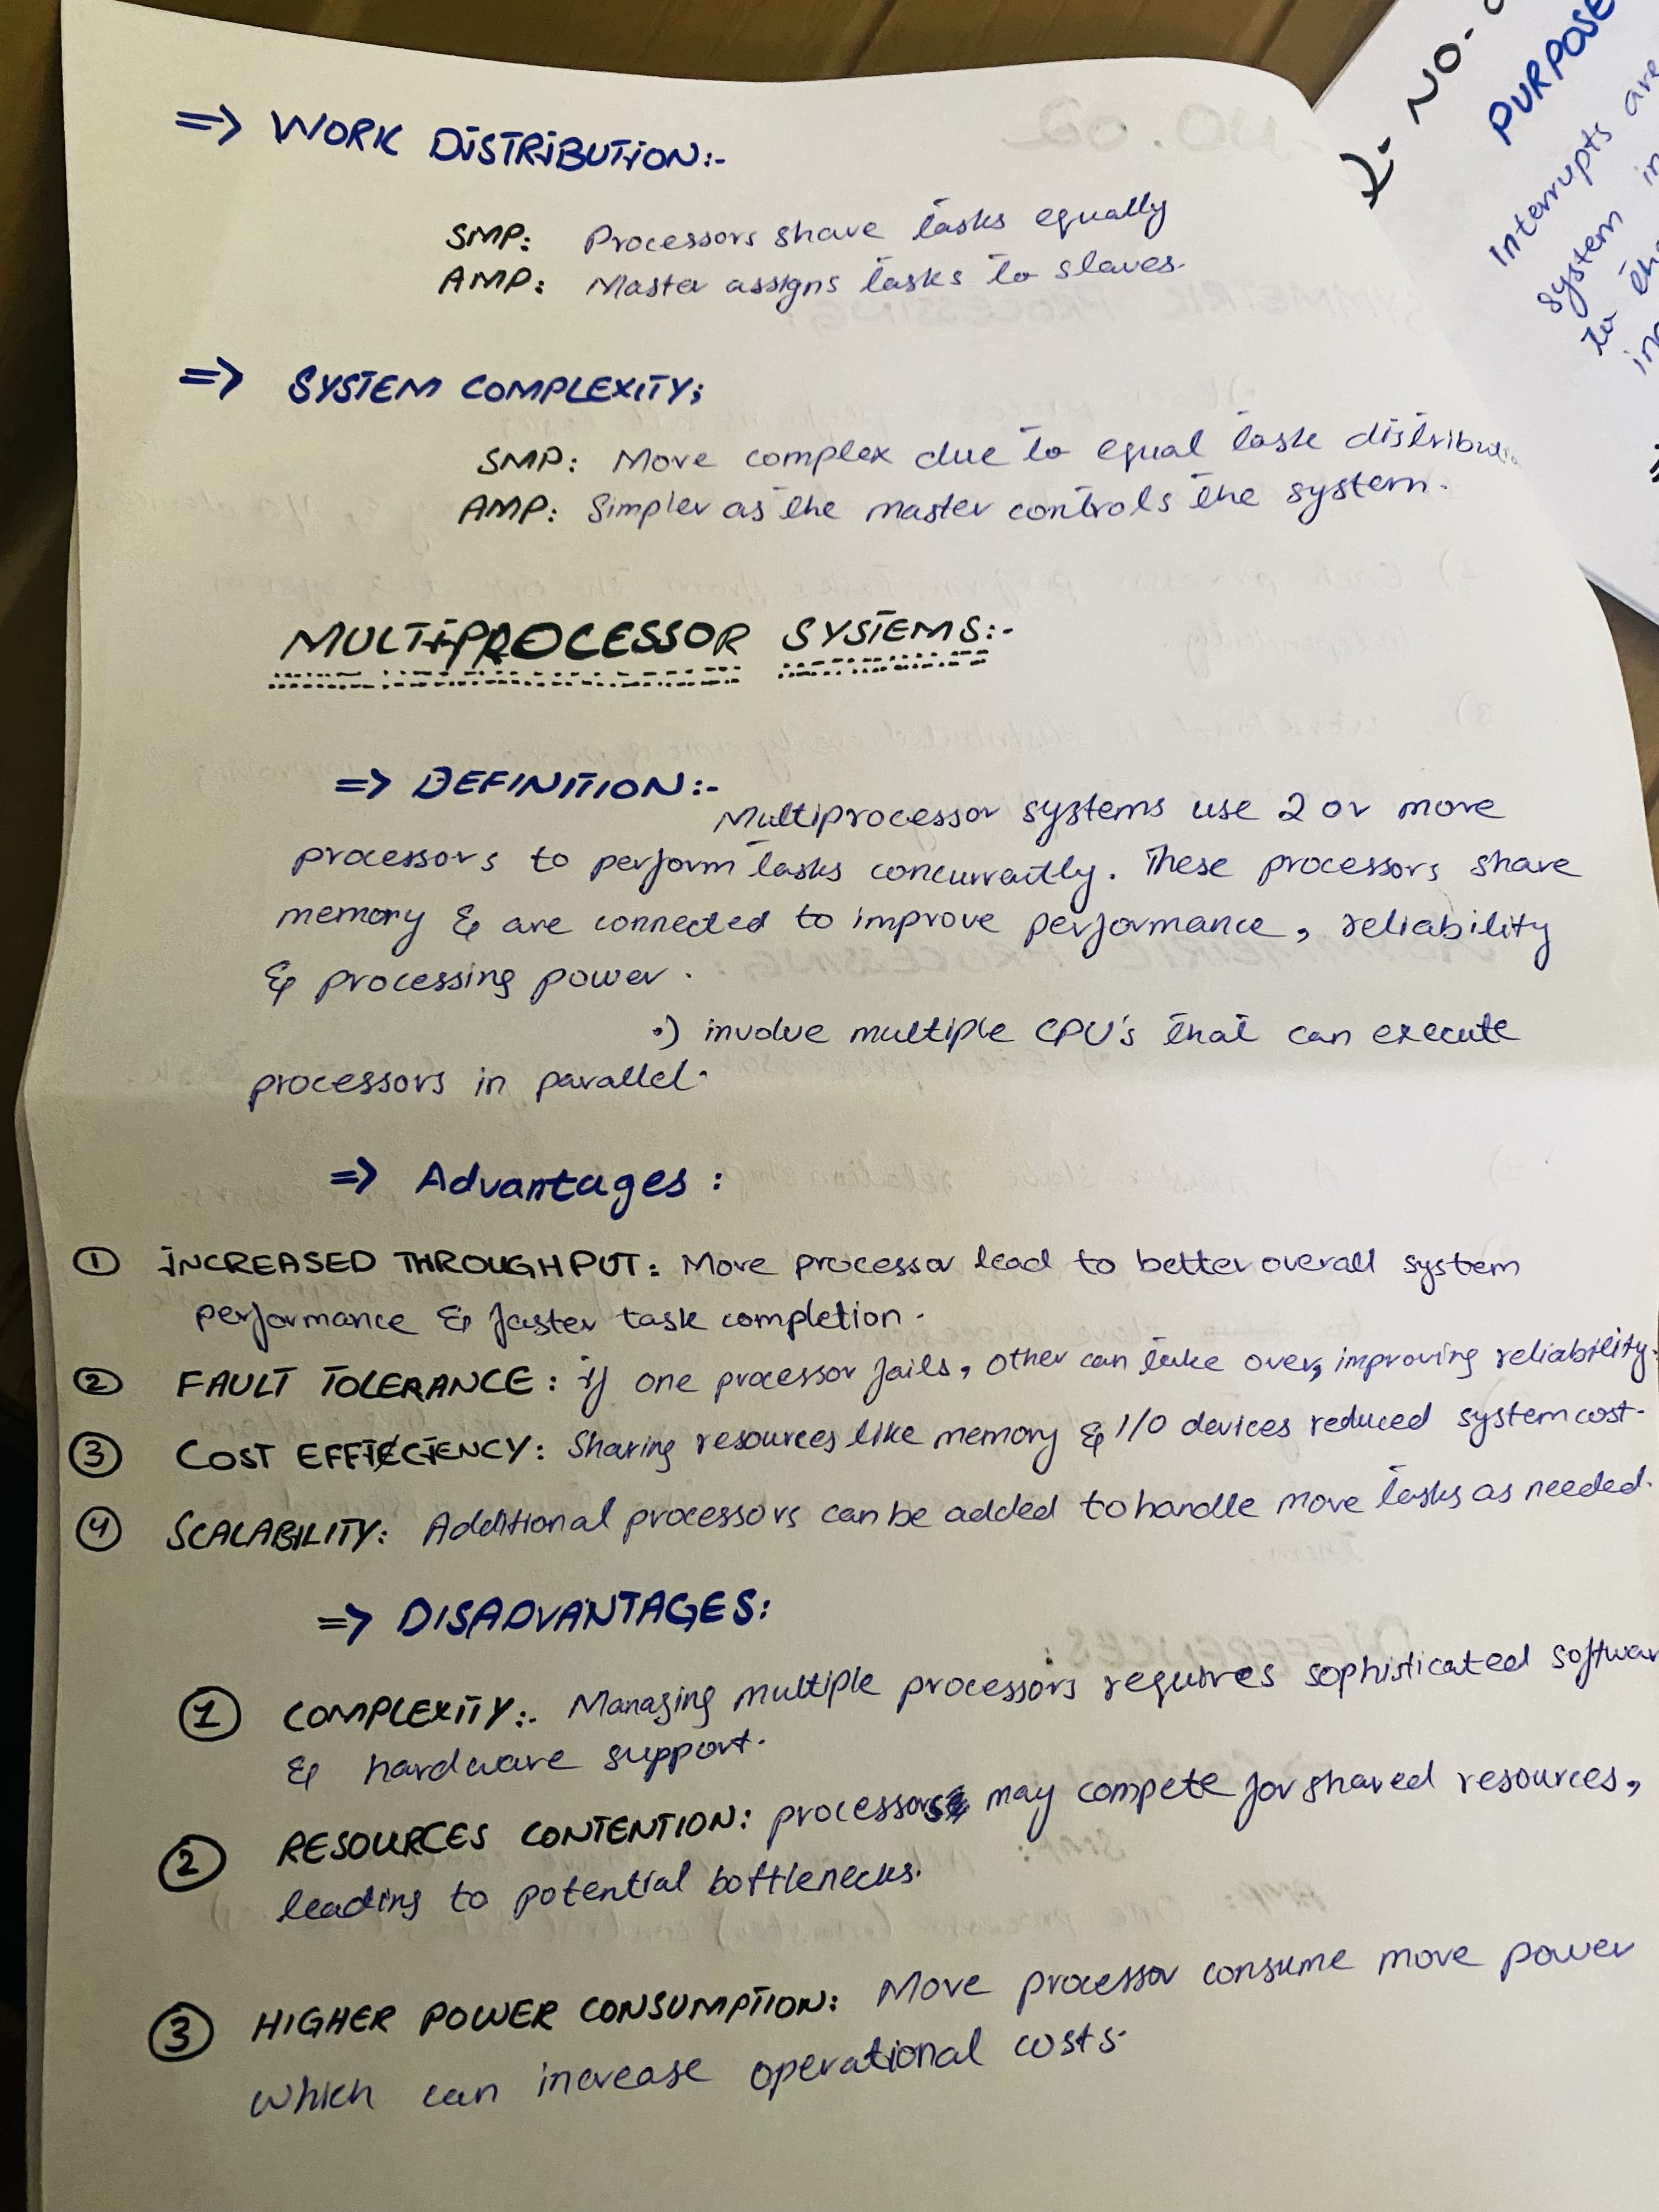 => WORK DISTRIBUTION:-
SMP: Processors share tasks equally
AMP: Master assigns tasks to slaves.
=> SYSTEM COMPLEXITY:
SMP: More complex due to equal task distribu
AMP: Simpler as the master controls the system.
MULTIPROCESSOR SYSTEMS:-
=> DEFINITION:-
Multiprocessor systems use 2 or more
processors to perform tasks concurrently. These processors share
memory & are connected to improve performance, reliability
& processing power.
•) involve multiple CPU's that can execute
processors in parallel.
=> Advantages:
① INCREASED THROUGHPUT: More processor lead to better overall system
performance & faster task completion.
② FAULT TOLERANCE: if one processor fails, other can take over, improving reliability.
③ COST EFFICIENCY: Sharing resources like memory & I/O devices reduced system cost.
④ SCALABILITY: Additional processors can be added to handle more tasks as needed.
=> DISADVANTAGES:
① COMPLEXITY:- Managing multiple processors requires sophisticated softwar
& hardware support.
② RESOURCES CONTENTION: processors may compete for shared resources,
leading to potential bottlenecks.
③ HIGHER POWER CONSUMPTION: More processor consume more power
which can increase operational costs.
NO-
PURPOSE
Interrupts are
system in
to the